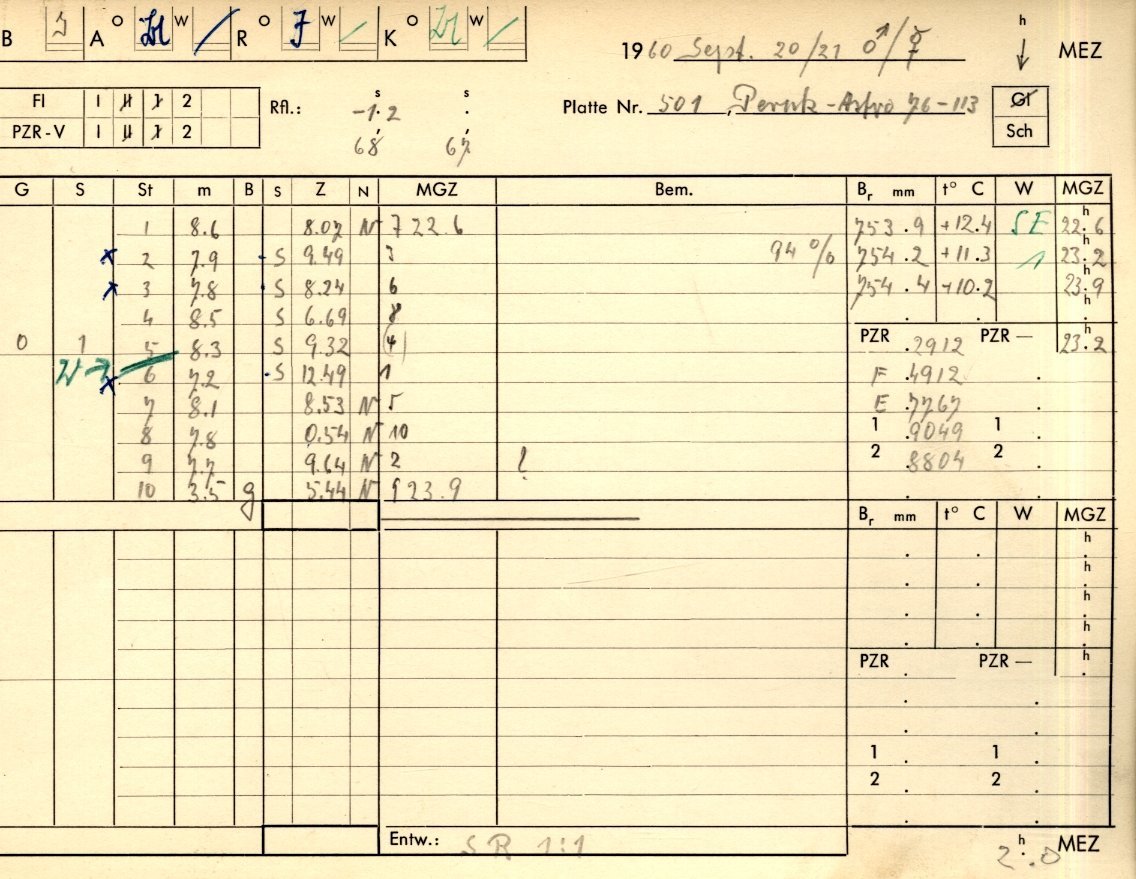 B A O W R O F W K O W 1960 Sept. 20/21 ♂/☿ h MEZ
Fl 1 2 Rfl.: s -1.2 s . Platte Nr. 501, -Astro 76-113 Gl
PZR-V 1 2 68 67 Sch
G S St m B S Z N MGZ Bem. Br mm t° C W MGZ
1 8.6 8.07 N 7 22.6 753.9 +12.4 SE 22.6
2 7.9 S 9.49 3 94% 754.2 +11.3 1 23.2
3 7.8 S 8.24 6 754.4 +10.2 23.9
4 8.5 S 6.69 8
0 1 5 8.3 S 9.32 (4) PZR .2912 PZR — 23.2
6 7.2 S 12.49 1 F .4912
7 8.1 8.53 N 5 E .7767
8 7.8 0.54 N 10 1 .9049 1
9 7.7 9.64 N 2 ! 2 .8804 2
10 3.5 g 5.44 N 9 23.9
Br mm t° C W MGZ
h
h
h
h
PZR PZR — h
1 1
2 2
Entw.: SR 1:1 2 h 0 MEZ